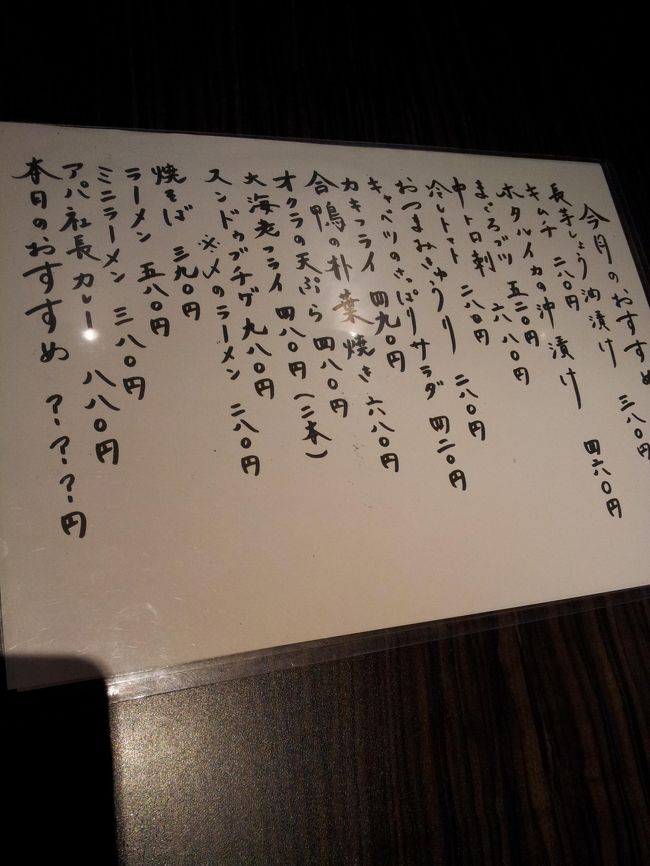 今月のおすすめ
長芋しょう油漬け 三八〇円
キムチ 二八〇円
ホタルイカの沖漬け 四六〇円
まぐろブツ 五二〇円
中トロ刺 六八〇円
冷しトマト 二八〇円
おつまみきゅうり 二八〇円
キャベツのさっぱりサラダ 四二〇円
カキフライ 四九〇円
合鴨の朴葉焼き 六八〇円
オクラの天ぷら 四八〇円
大海老フライ 四八〇円(二本)
スンドゥブチゲ 九八〇円
※〆のラーメン 二八〇円
焼そば 三九〇円
ラーメン 五八〇円
ミニラーメン 三八〇円
アパ社長カレー 八八〇円
本日のおすすめ ?・?・?・?円